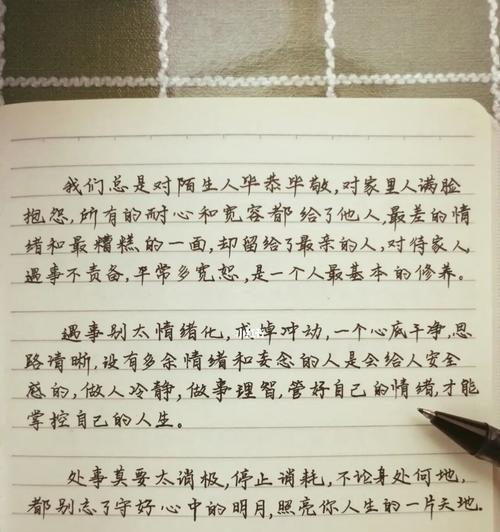 我们总是对陌生人毕恭毕敬,对家里人满脸
抱怨,所有的耐心和宽容都给了他人,最差的情
绪和最糟糕的一面,却留给了最亲的人,对待家人
遇事不责备,平常多宽恕,是一个人最基本的修养。
遇事别太情绪化,戒掉冲动,一个心底干净,思
路清晰,没有多余情绪和妄念的人是会给人安全
感的,做人冷静,做事理智,管好自己的情绪,才能
掌控自己的人生。
处事莫要太消极,停止消耗,不论身处何地,
都别忘了守好心中的明月,照亮你人生的一片天地.